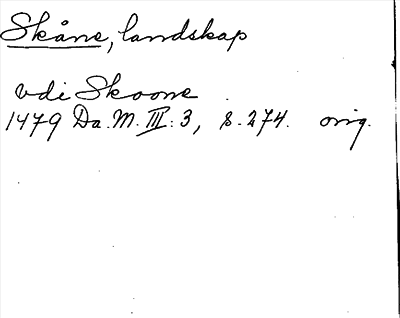 Skåne, landskap
vdi Skoone
1479 Da. M. III: 3, s. 274. orig.